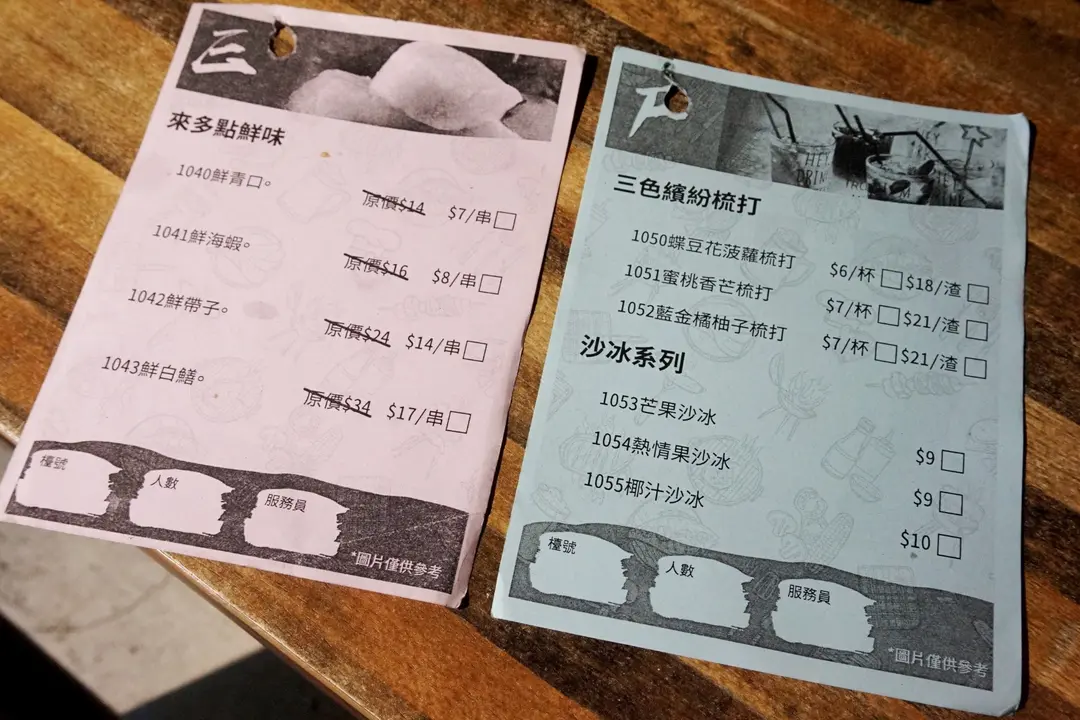 來多點鮮味
1040鮮青口。
原價$14 $7/串
1041鮮海蝦。
原價$16 $8/串
1042鮮帶子。
原價$24 $14/串
1043鮮白鱔。
原價$34 $17/串
檯號
人數
服務員
*圖片僅供參考
三色繽紛梳打
1050蝶豆花菠蘿梳打 $6/杯 $18/渣
1051蜜桃香芒梳打 $7/杯 $21/渣
1052藍金橘柚子梳打 $7/杯 $21/渣
沙冰系列
1053芒果沙冰 $9
1054熱情果沙冰 $9
1055椰汁沙冰 $10
檯號
人數
服務員
*圖片僅供參考